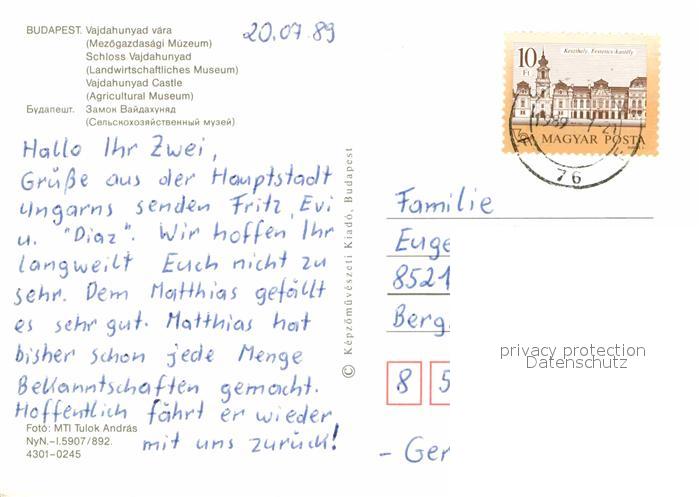 BUDAPEST. Vajdahunyad vára
(Mezőgazdasági Múzeum)
Schloss Vajdahunyad
(Landwirtschaftliches Museum)
Vajdahunyad Castle
(Agricultural Museum)
Будапешт. Замок Вайдахуняд
(Сельскохозяйственный музей)
20.07.89
Hallo Ihr Zwei,
Grüße aus der Hauptstadt
Ungarns senden Fritz, Evi
u. "Diaz". Wir hoffen Ihr
langweilt Euch nicht zu
sehr. Dem Matthias gefällt
es sehr gut. Matthias hat
bisher schon jede Menge
Bekanntschaften gemacht.
Hoffentlich fährt er wieder
mit uns zurück!
Fotó: MTI Tulok András
NyN.–I.5907/892.
4301–0245
© Képzőművészeti Kiadó, Budapest
Keszthely, Festetics-kastély
10
Ft
MAGYAR POSTA
1989
76
Familie
Euge
8521
Berg
8 5
- Ger
privacy protection
Datenschutz